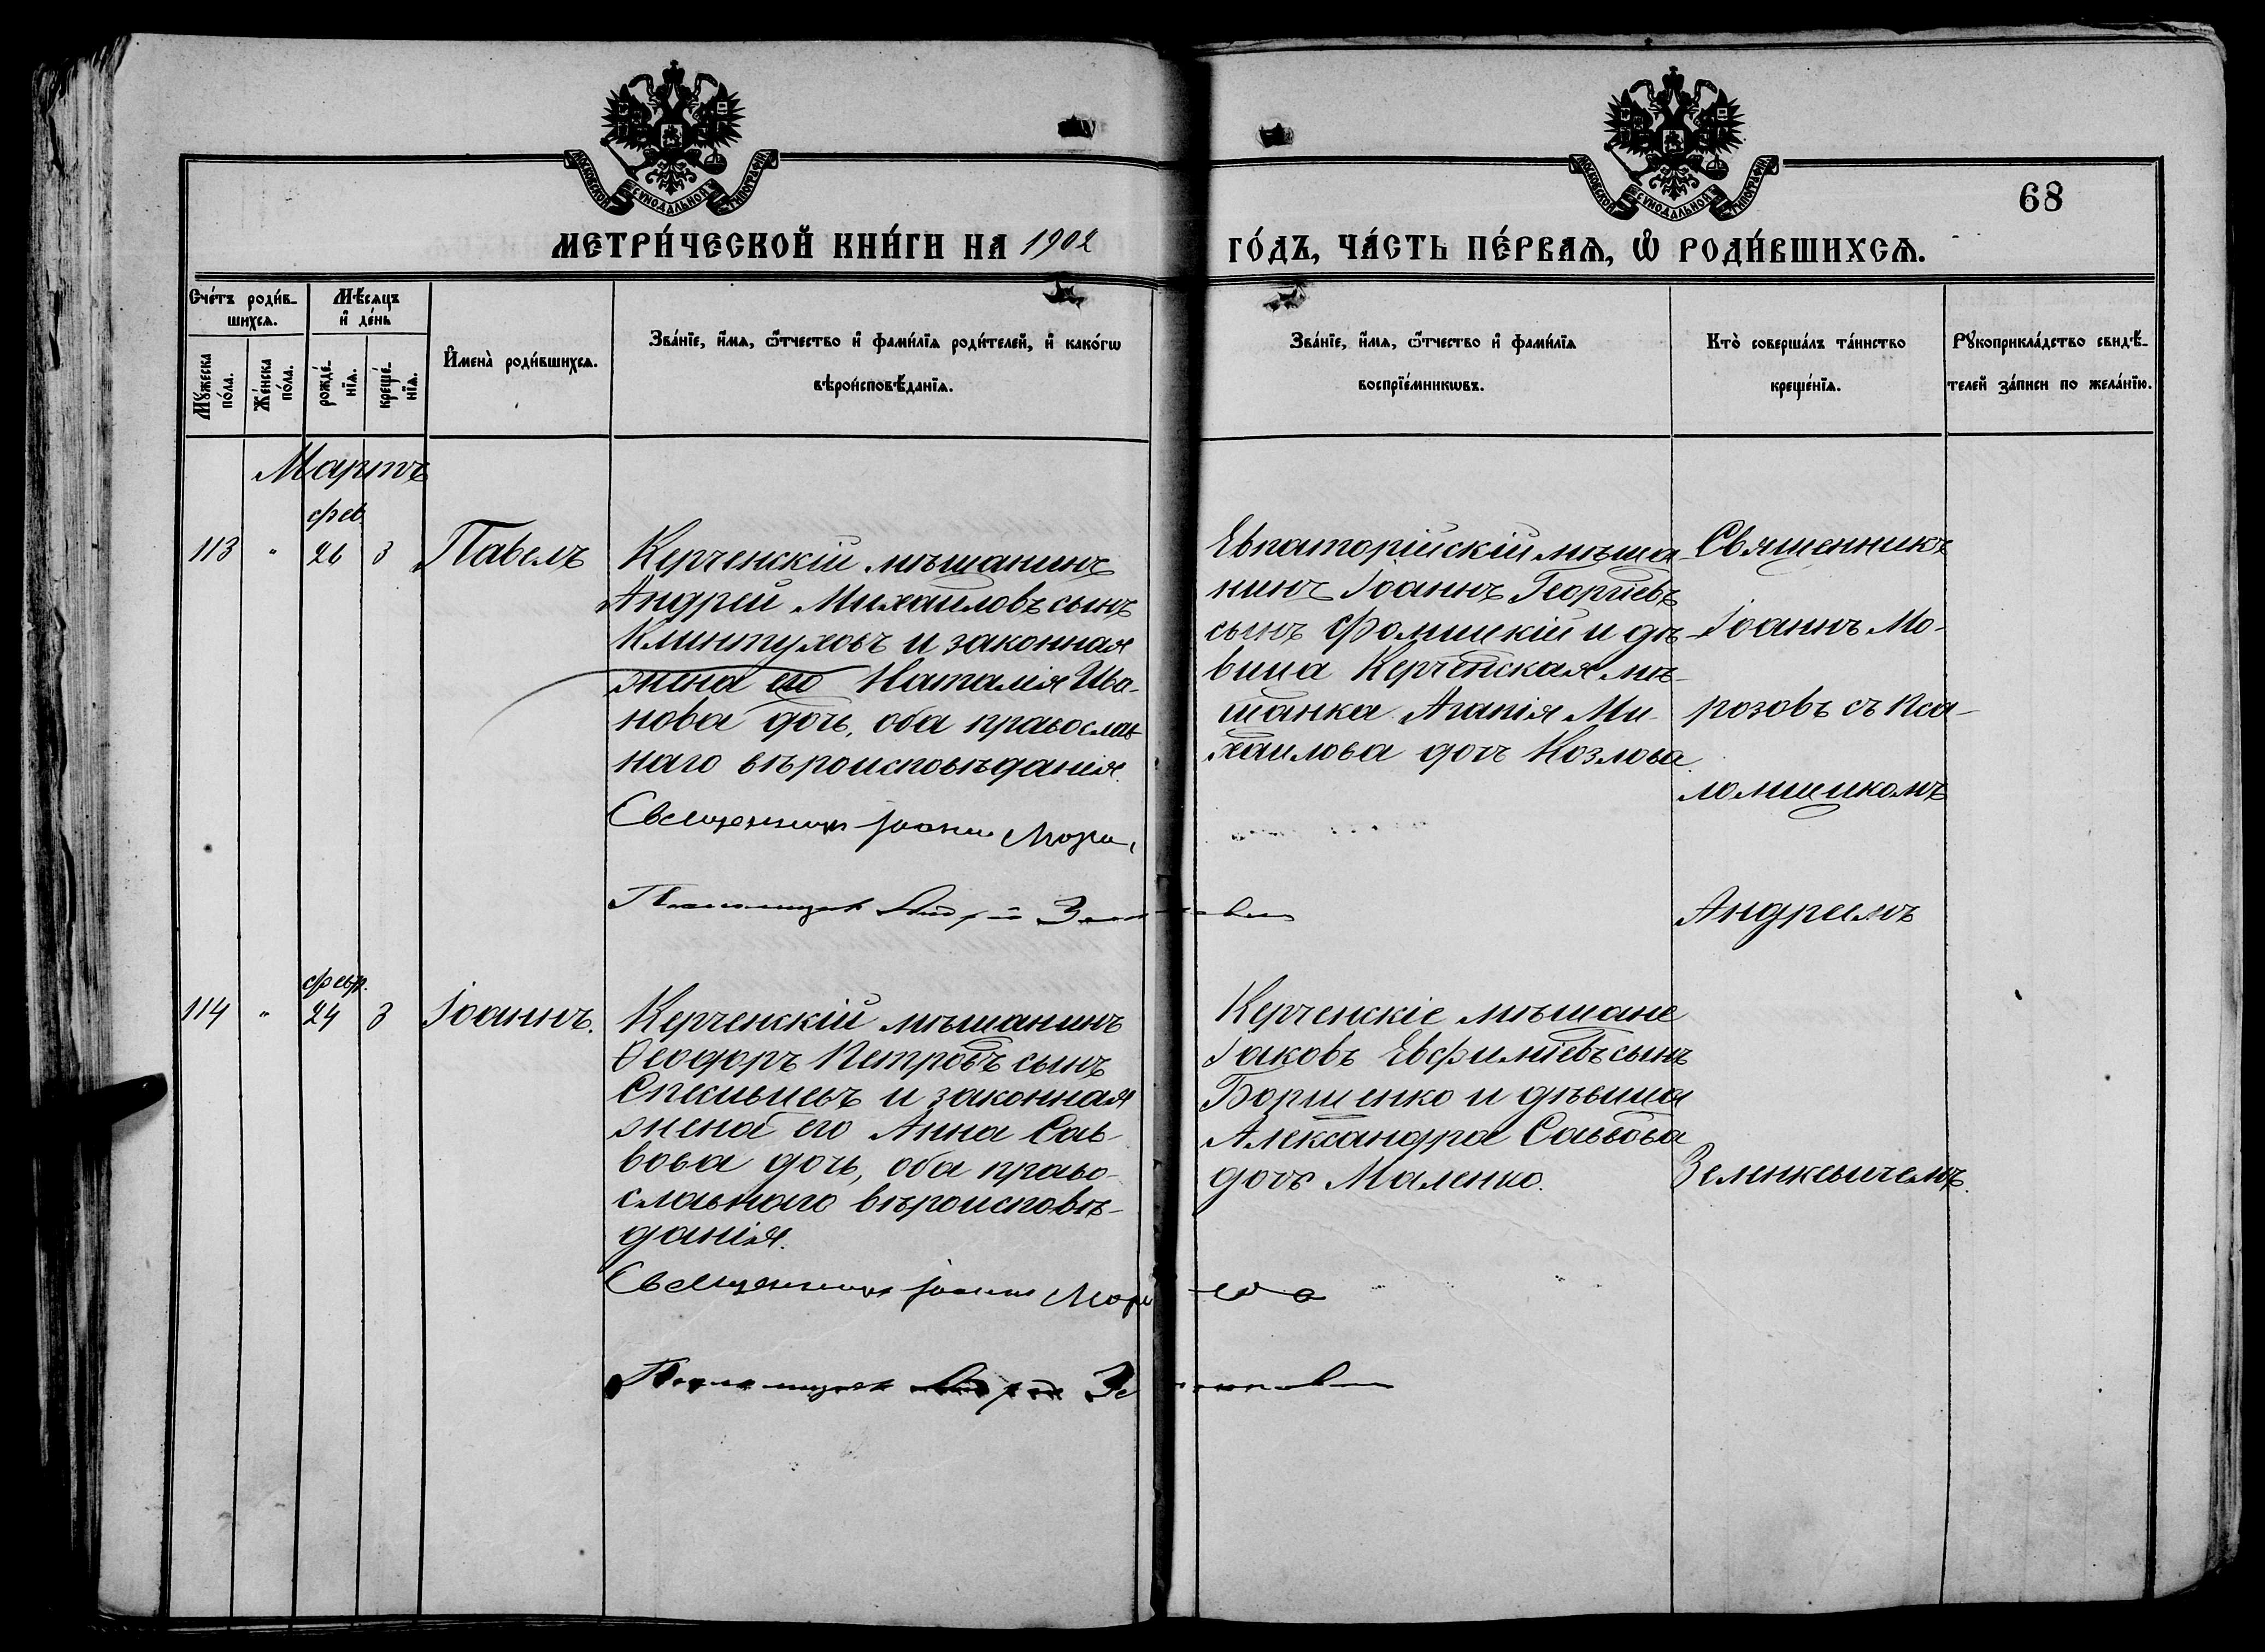 МОСКОВСКОЙ СУНОДАЛЬНОЙ ТИПОГРАФІИ
МОСКОВСКОЙ СУНОДАЛЬНОЙ ТИПОГРАФІИ
68
МЕТРИ́ЧЕСКОЙ КНИ́ГИ НА 1902
ГО́ДЪ, ЧА́СТЬ ПЕ́РВАѦ, Ѡ҆ РОДИ́ВШИХСѦ.
Сче́тъ роди́в-
шихсѧ.
Мꙋ́жеска
по́ла.
Же́нска
по́ла.
Мѣ́сѧцъ
и҆ де́нь
рожде́-
нїѧ.
креще́-
нїѧ.
И҆мена̀ роди́вшихсѧ.
Зва́нїе, и҆́мѧ, ѻ҆́тчество и҆ фами́лїѧ роди́телей, и҆ како́гѡ
вѣроисповѣ́данїѧ.
Зва́нїе, и҆́мѧ, ѻ҆́тчество и҆ фами́лїѧ
воспрїе́мникѡвъ.
Кто̀ соверша́лъ та́инство
креще́нїѧ.
Рꙋкоприкла́дство свидѣ́-
телей за́писи по жела́нїю.
Мартъ
фев.
113 " 26 3 Павелъ
Керченскій мѣщанинъ
Андрей Михайловъ сынъ
Клинтуховъ и законная
жена его Наталія Ива-
нова дочь, оба православ-
наго вѣроисповѣданія.
Священникъ Іоаннъ
Псаломщикъ Андрей
Евпаторійскій мѣща-
нинъ Іоаннъ Георгіевъ
сынъ Фомицкій и дѣ-
вица Керченская мѣ-
щанка Агапія Ми-
хаилова дочь Козлова.
Священникъ
Іоаннъ Мо-
розовъ съ Пса-
ломщикомъ
Андреемъ
Зеленкевичемъ.
февр.
114 " 24 3 Іоаннъ.
Керченскій мѣщанинъ
Ѳеодоръ Петровъ сынъ
и законная
жена его Анна Сав-
вова дочь, оба право-
славнаго вѣроисповѣ-
данія.
Священникъ Іоаннъ
Псаломщикъ Андрей
Керченскіе мѣщане
Іаковъ Евфиміевъ сынъ
Борщенко и дѣвица
Александра Саввова
дочь Маленко.